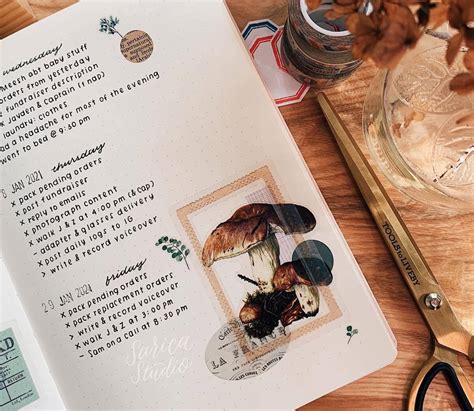 wednesday
Meesh abt baby stuff
orders from yesterday
fundraiser description
Jayden & Captain (1 nap)
laundry: clothes
had a headache for most of the evening
went to bed @ 9:30 pm
JAN 2021 thursday
x pack pending orders
x post fundraiser
x reply to emails
x photograph content
x walk J & Z at 4:00 PM (& cap)
- adapter & glasses delivery
x post daily logs to IG
> write & record voiceover
29 JAN 2021 friday
x pack pending orders
x pack replacement orders
> write & record voiceover
x walk J & Z at 3:00 pm
- Sam on a call at 8:30 pm
Sarica
Studio
TOOLS to LIVEBY
LA